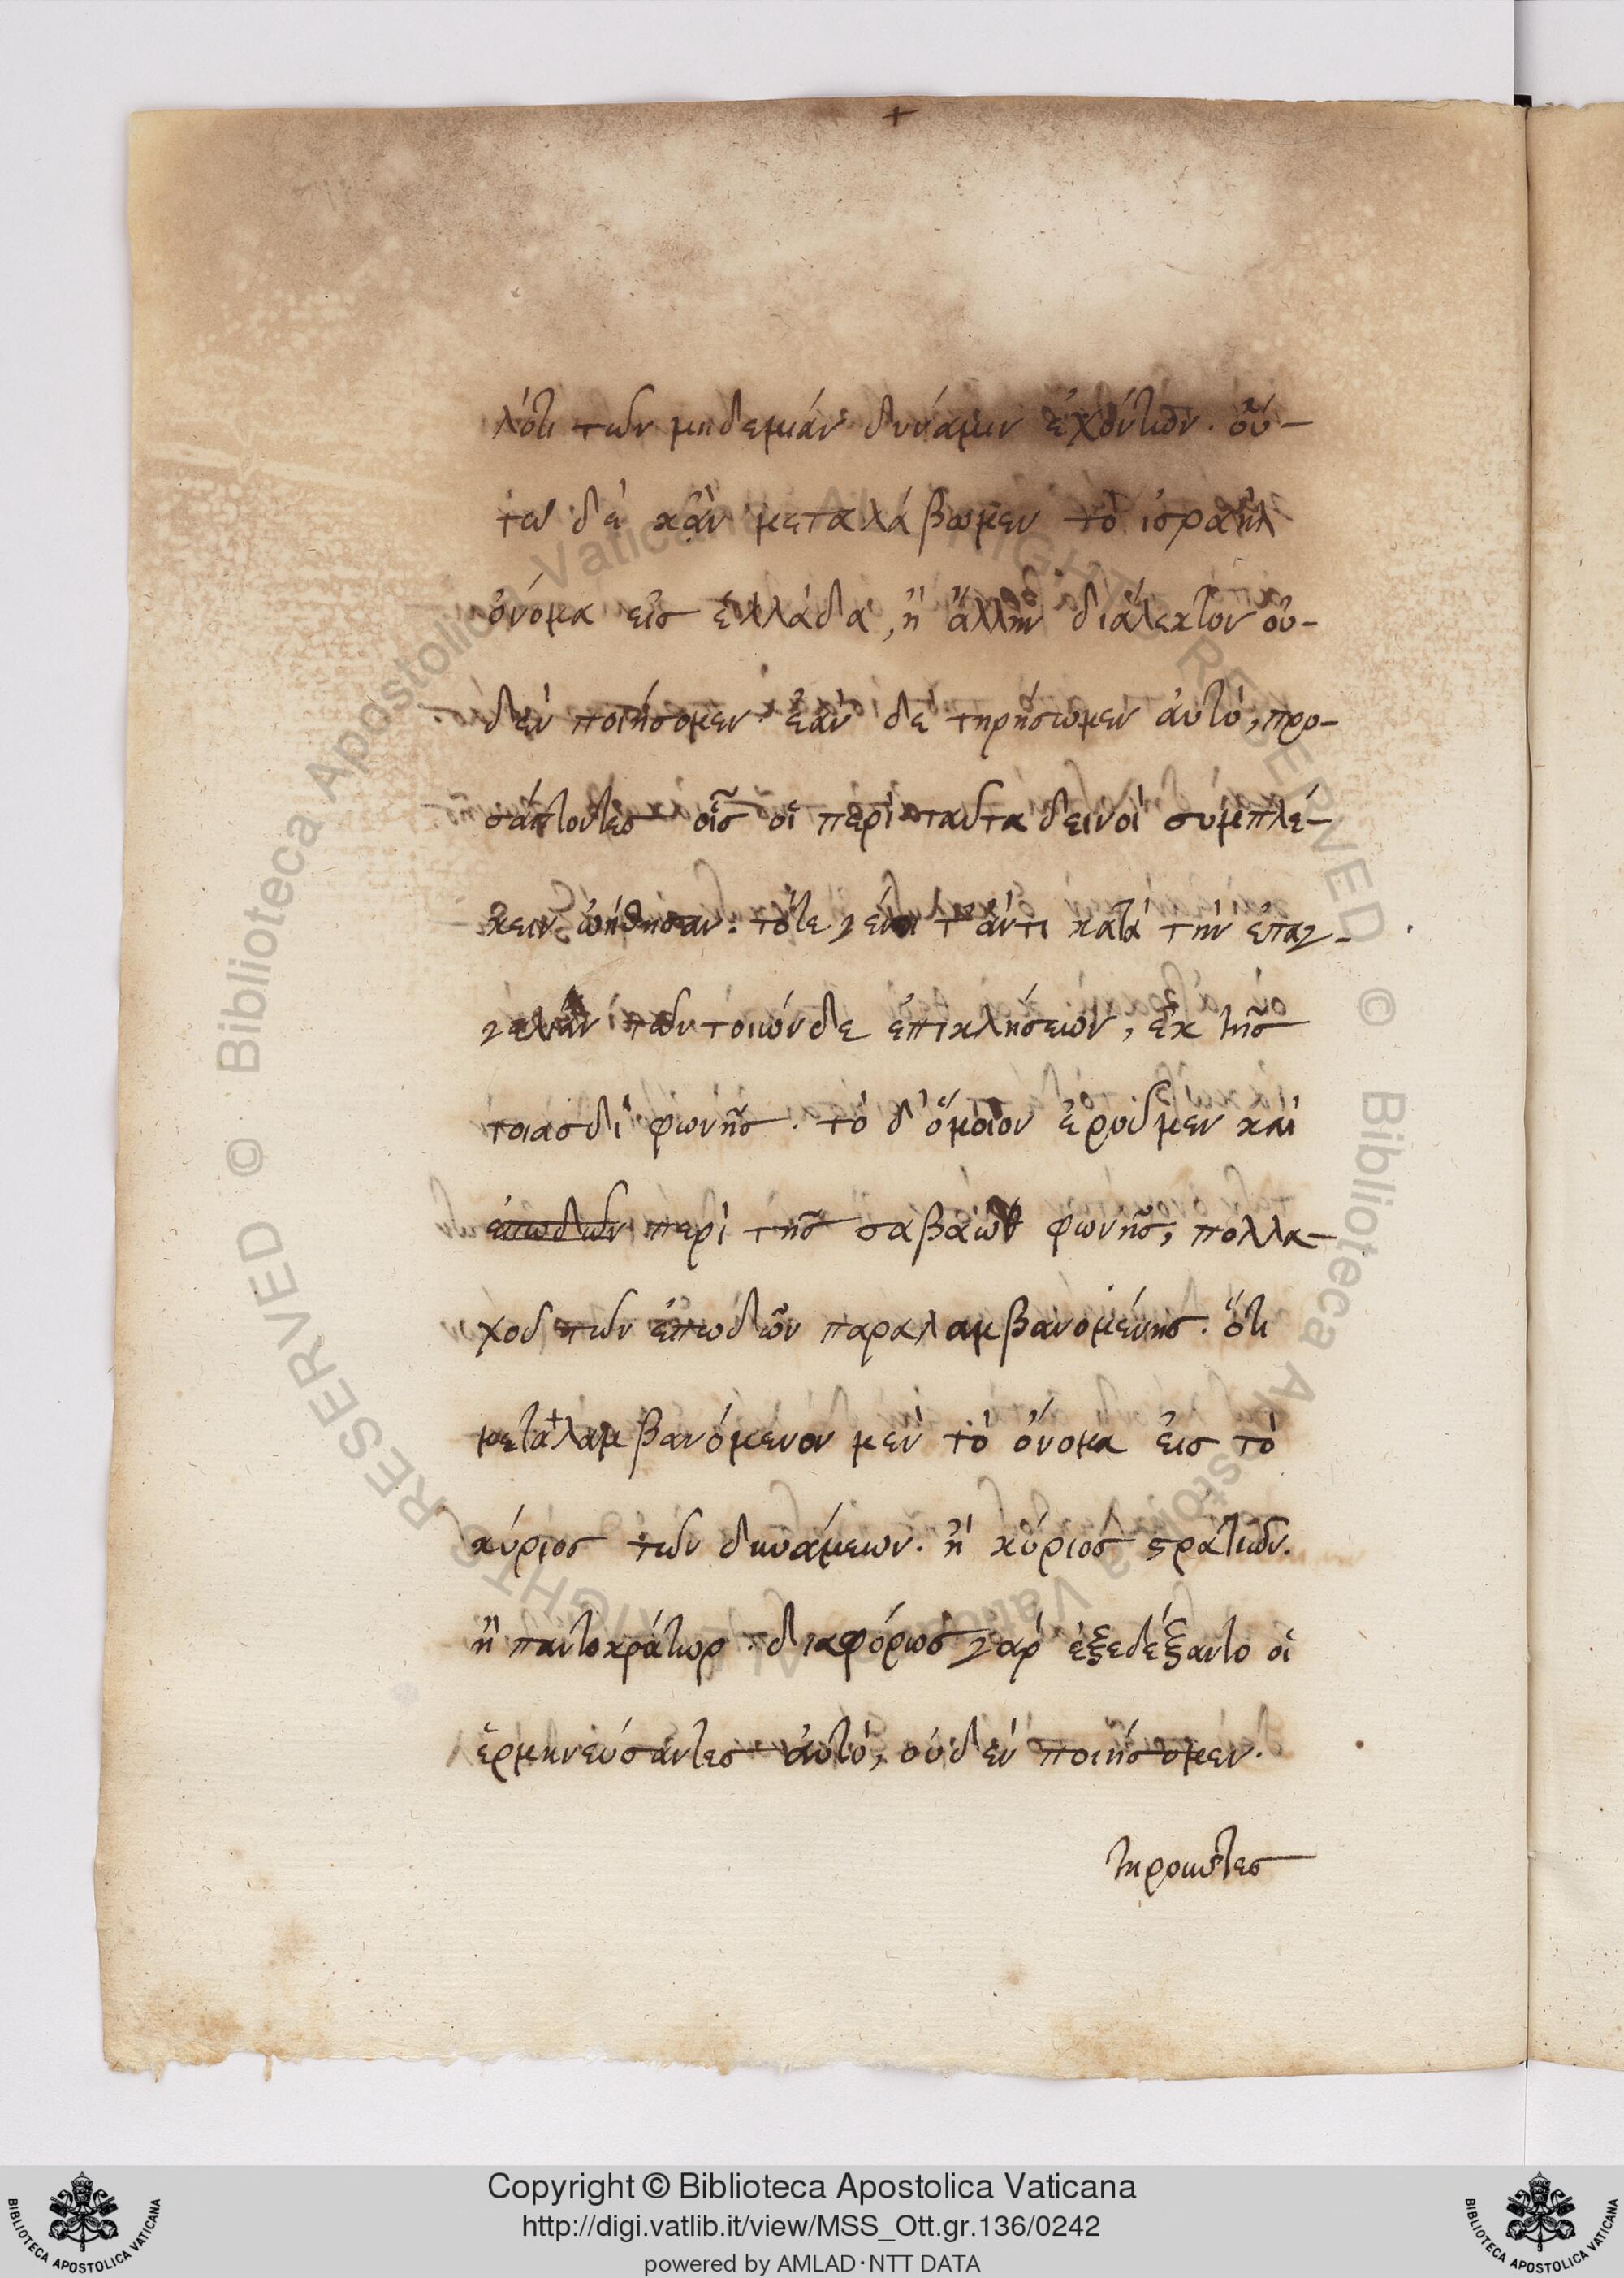 +
λότι των μηδεμιάν δυνάμιν ἐχόντων. οὕ-
τω δὲ κἂν μεταλάβωμεν τὸ ἰσραὴλ
ὄνομα εἰς ἑλλάδα, ἢ ἄλλην διάλεκτον οὐ-
δὲν ποιήσομεν. ἐὰν δὲ τηρήσωμεν ἀυτὸ, προ-
σάπτοντες οἷς οἱ περὶ ταῦτα δεινοὶ συμπλέ-
κειν ὠήθησαν. τότε γένοι τ' ἄν τι κατὰ τὴν ἐπαγ-
γελίαν τῶν τοιώνδε ἐπικλήσεων, ἐκ τῆς
τοιασδὶ φωνῆς. τὸ δ' ὅμοιον ἐροῦμεν καὶ
ἐπωδῶν περὶ τῆς σαβαὼθ φωνῆς, πολλα-
χοῦ τῶν ἐπωδῶν παραλαμβανομένης. ὅτι
μεταλαμβανόμενον μὲν τὸ ὄνομα εἰς τὸ
κύριος τῶν δυνάμεων. ἢ κύριος στρατιῶν.
ἢ παντοκράτωρ. διαφόρως γὰρ ἐξεδέξαντο οἱ
ἑρμηνεύσαντες ἀυτὸ, οὐδὲν ποιήσομεν.
τηροῦντες
Copyright © Biblioteca Apostolica Vaticana
http://digi.vatlib.it/view/MSS_Ott.gr.136/0242
powered by AMLAD·NTT DATA
BIBLIOTECA APOSTOLICA VATICANA
BIBLIOTECA APOSTOLICA VATICANA
© Biblioteca Apostolica Vaticana ALL RIGHTS RESERVED © Biblioteca Apostolica Vaticana ALL RIGHTS RESERVED